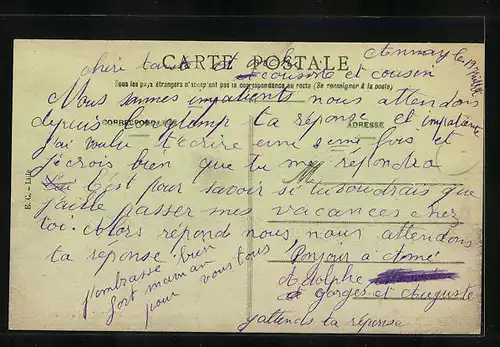 Annay le 19 juillet
chéri tante et
CARTE POSTALE
cousine et cousin
Tous les pays étrangers n'acceptent pas la correspondance au recto (Se renseigner à la poste)
Nous sommes impatients nous attendons
CORRESPONDANCE
ADRESSE
depuis longtemp ta réponse et impatiente
j'ai voulu t'écrire une 2eme fois et
je crois bien que tu me répondra
C'est pour savoir si tu voudrais que
j'aille passer mes vacances chez
toi. Alors répond nous, nous attendons
ta réponse.
j'embrasse bien
fort maman
pour vous tous
Bonjour à Aimé
Adolphe
et gorges et Auguste
j'attends ta réponse
E. C. - Lille